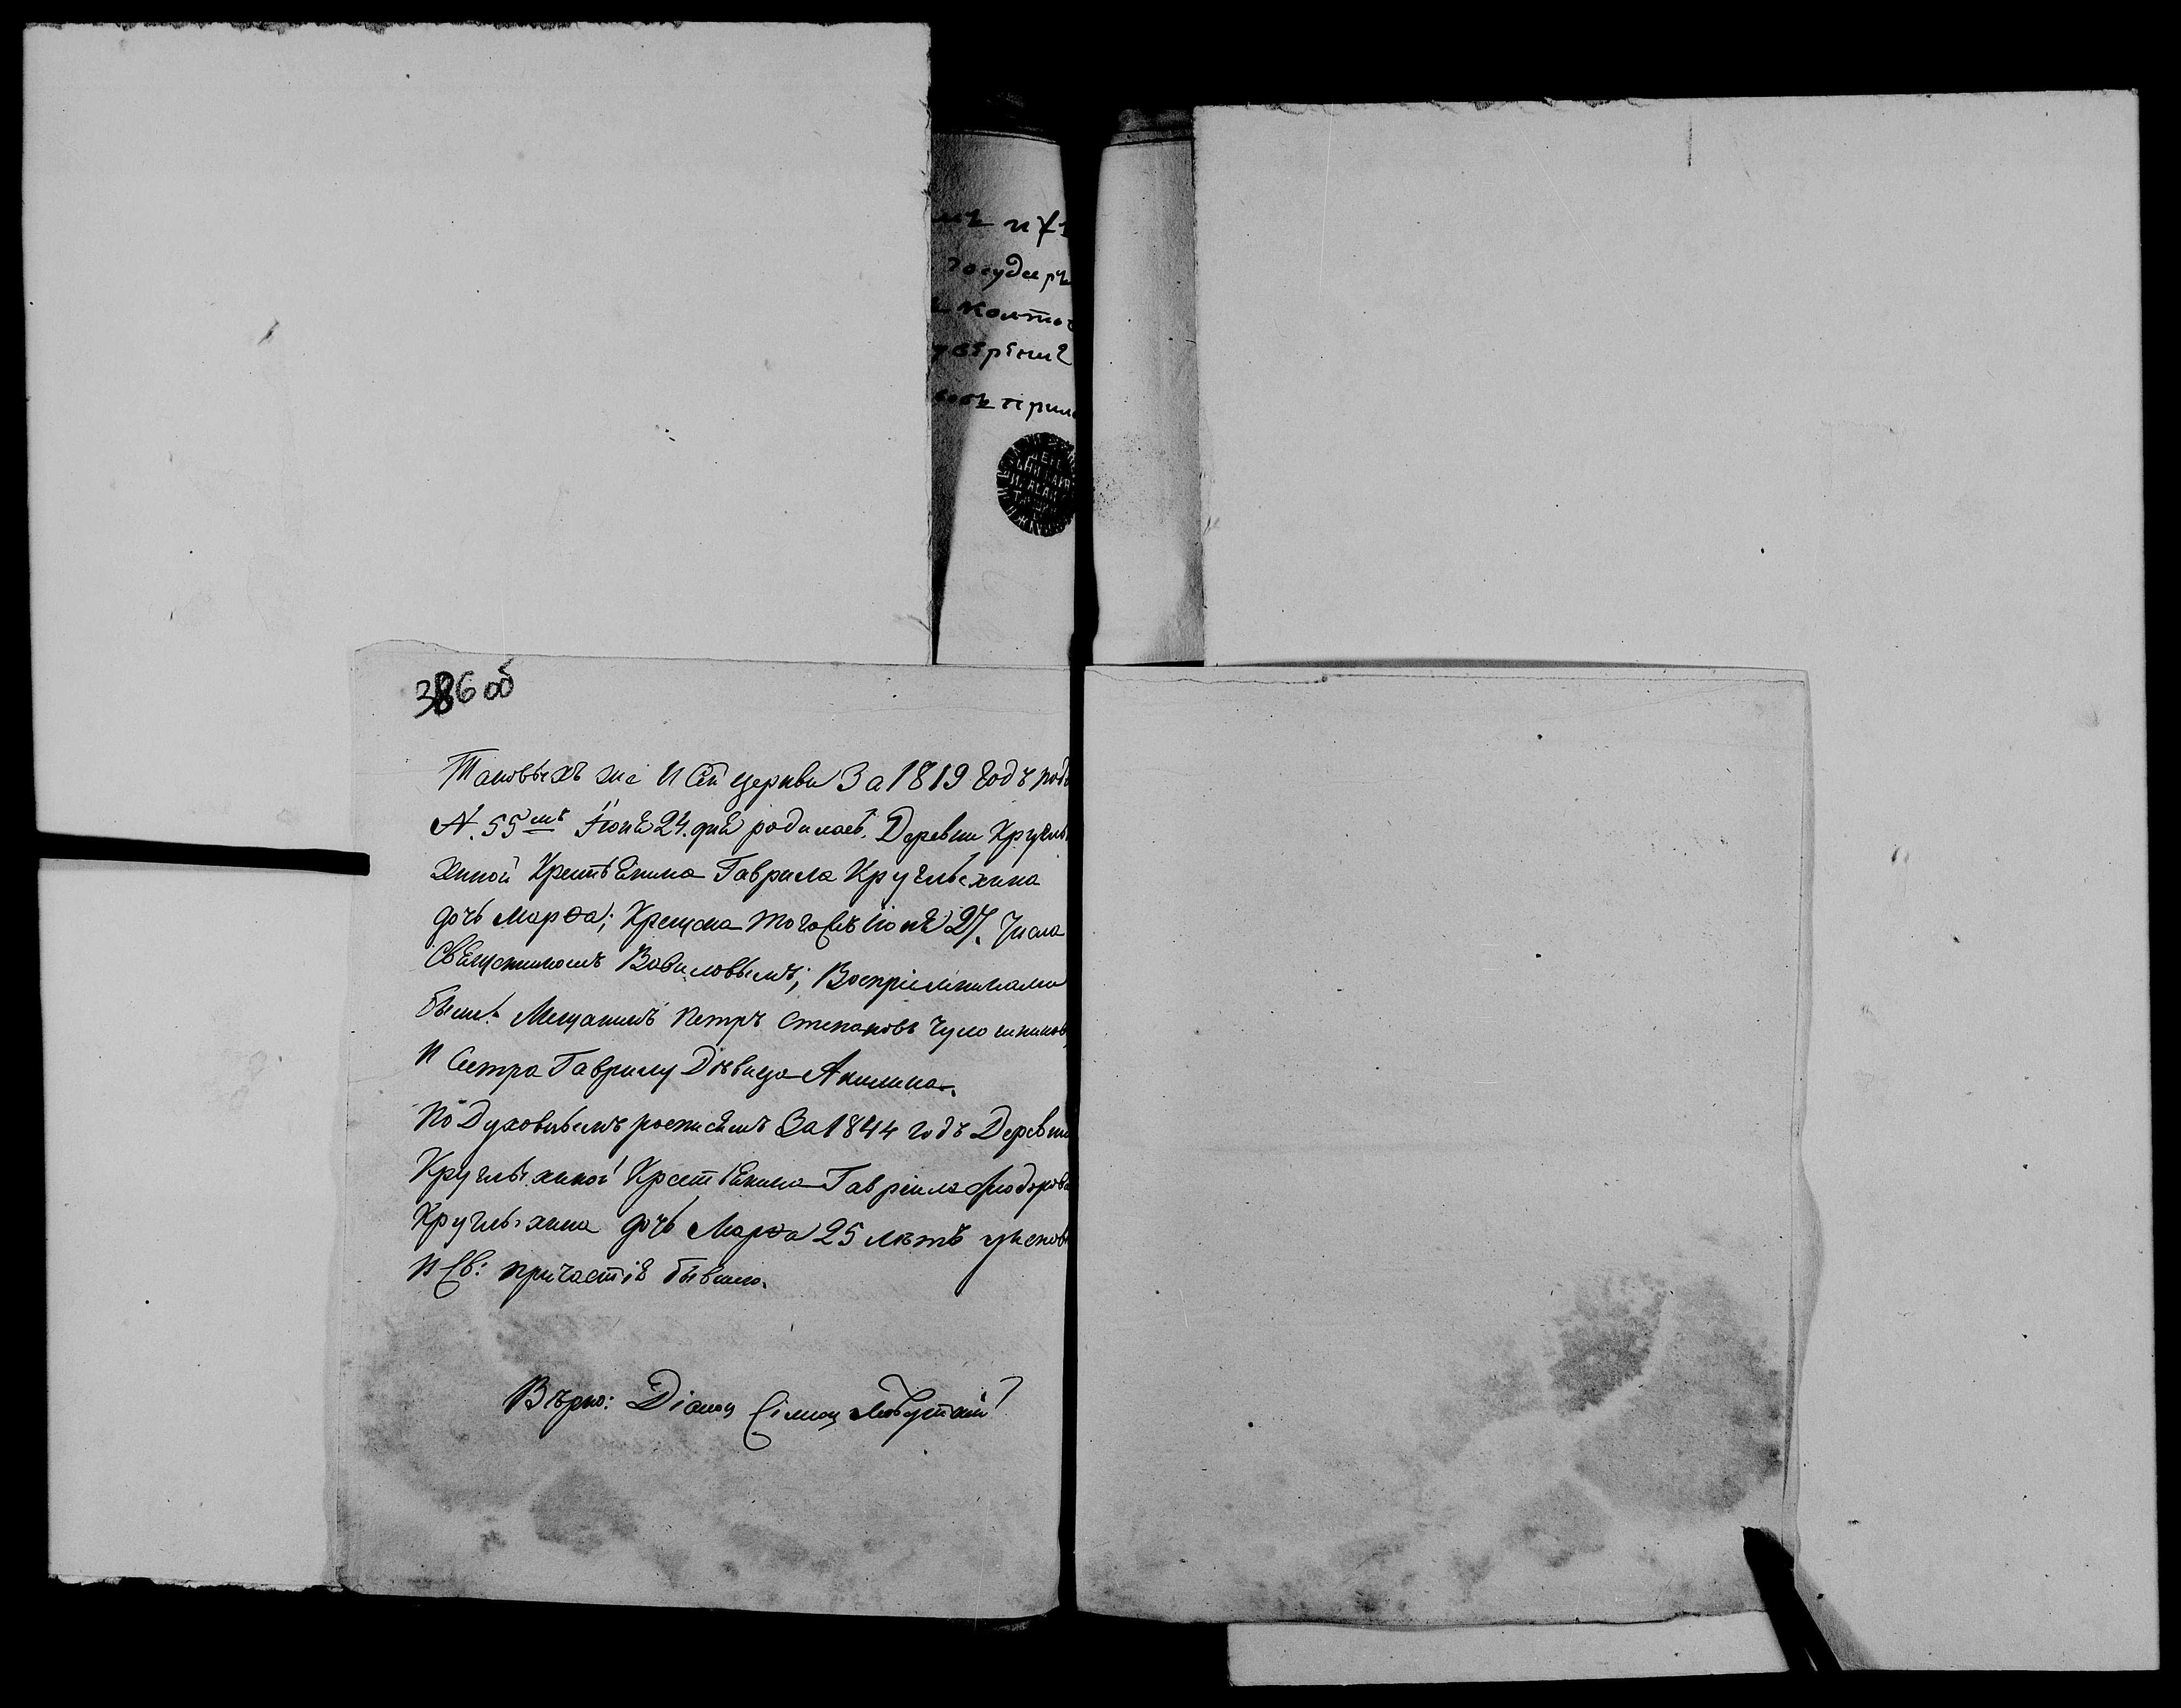 мъ и
государ
контo
увѣрение
собъ прил
386 об
Таковыхъ же и Сей церкви За 1819 годъ подъ
N. 55мъ Іюня 24. дня родилась, Деревни Кругл
хиной Крестьянина Гаврила Круглыхина
дочь Марѳа; Крещена тогожъ Іюня 27. Числа
Священникомъ Вавиловымъ; Воспріемниками
были: Мещанинъ Петръ Степановъ Чулошников
И Сестра Гаврилу Дѣвица Акилина.
По Духовнымъ росписямъ За 1844 годъ Деревни
Круглыхиной Крестьянина Гавріила Ѳеодорова
Круглыхина дочь Марѳа 25 лѣтъ у испов
И Св: причастія бывшею.
Вѣрно: Діаконъ Симонъ